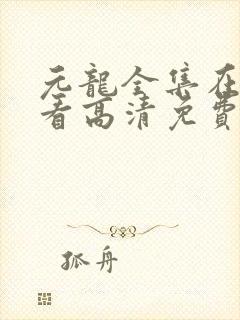 元龍全集在
看高清免費
孤舟